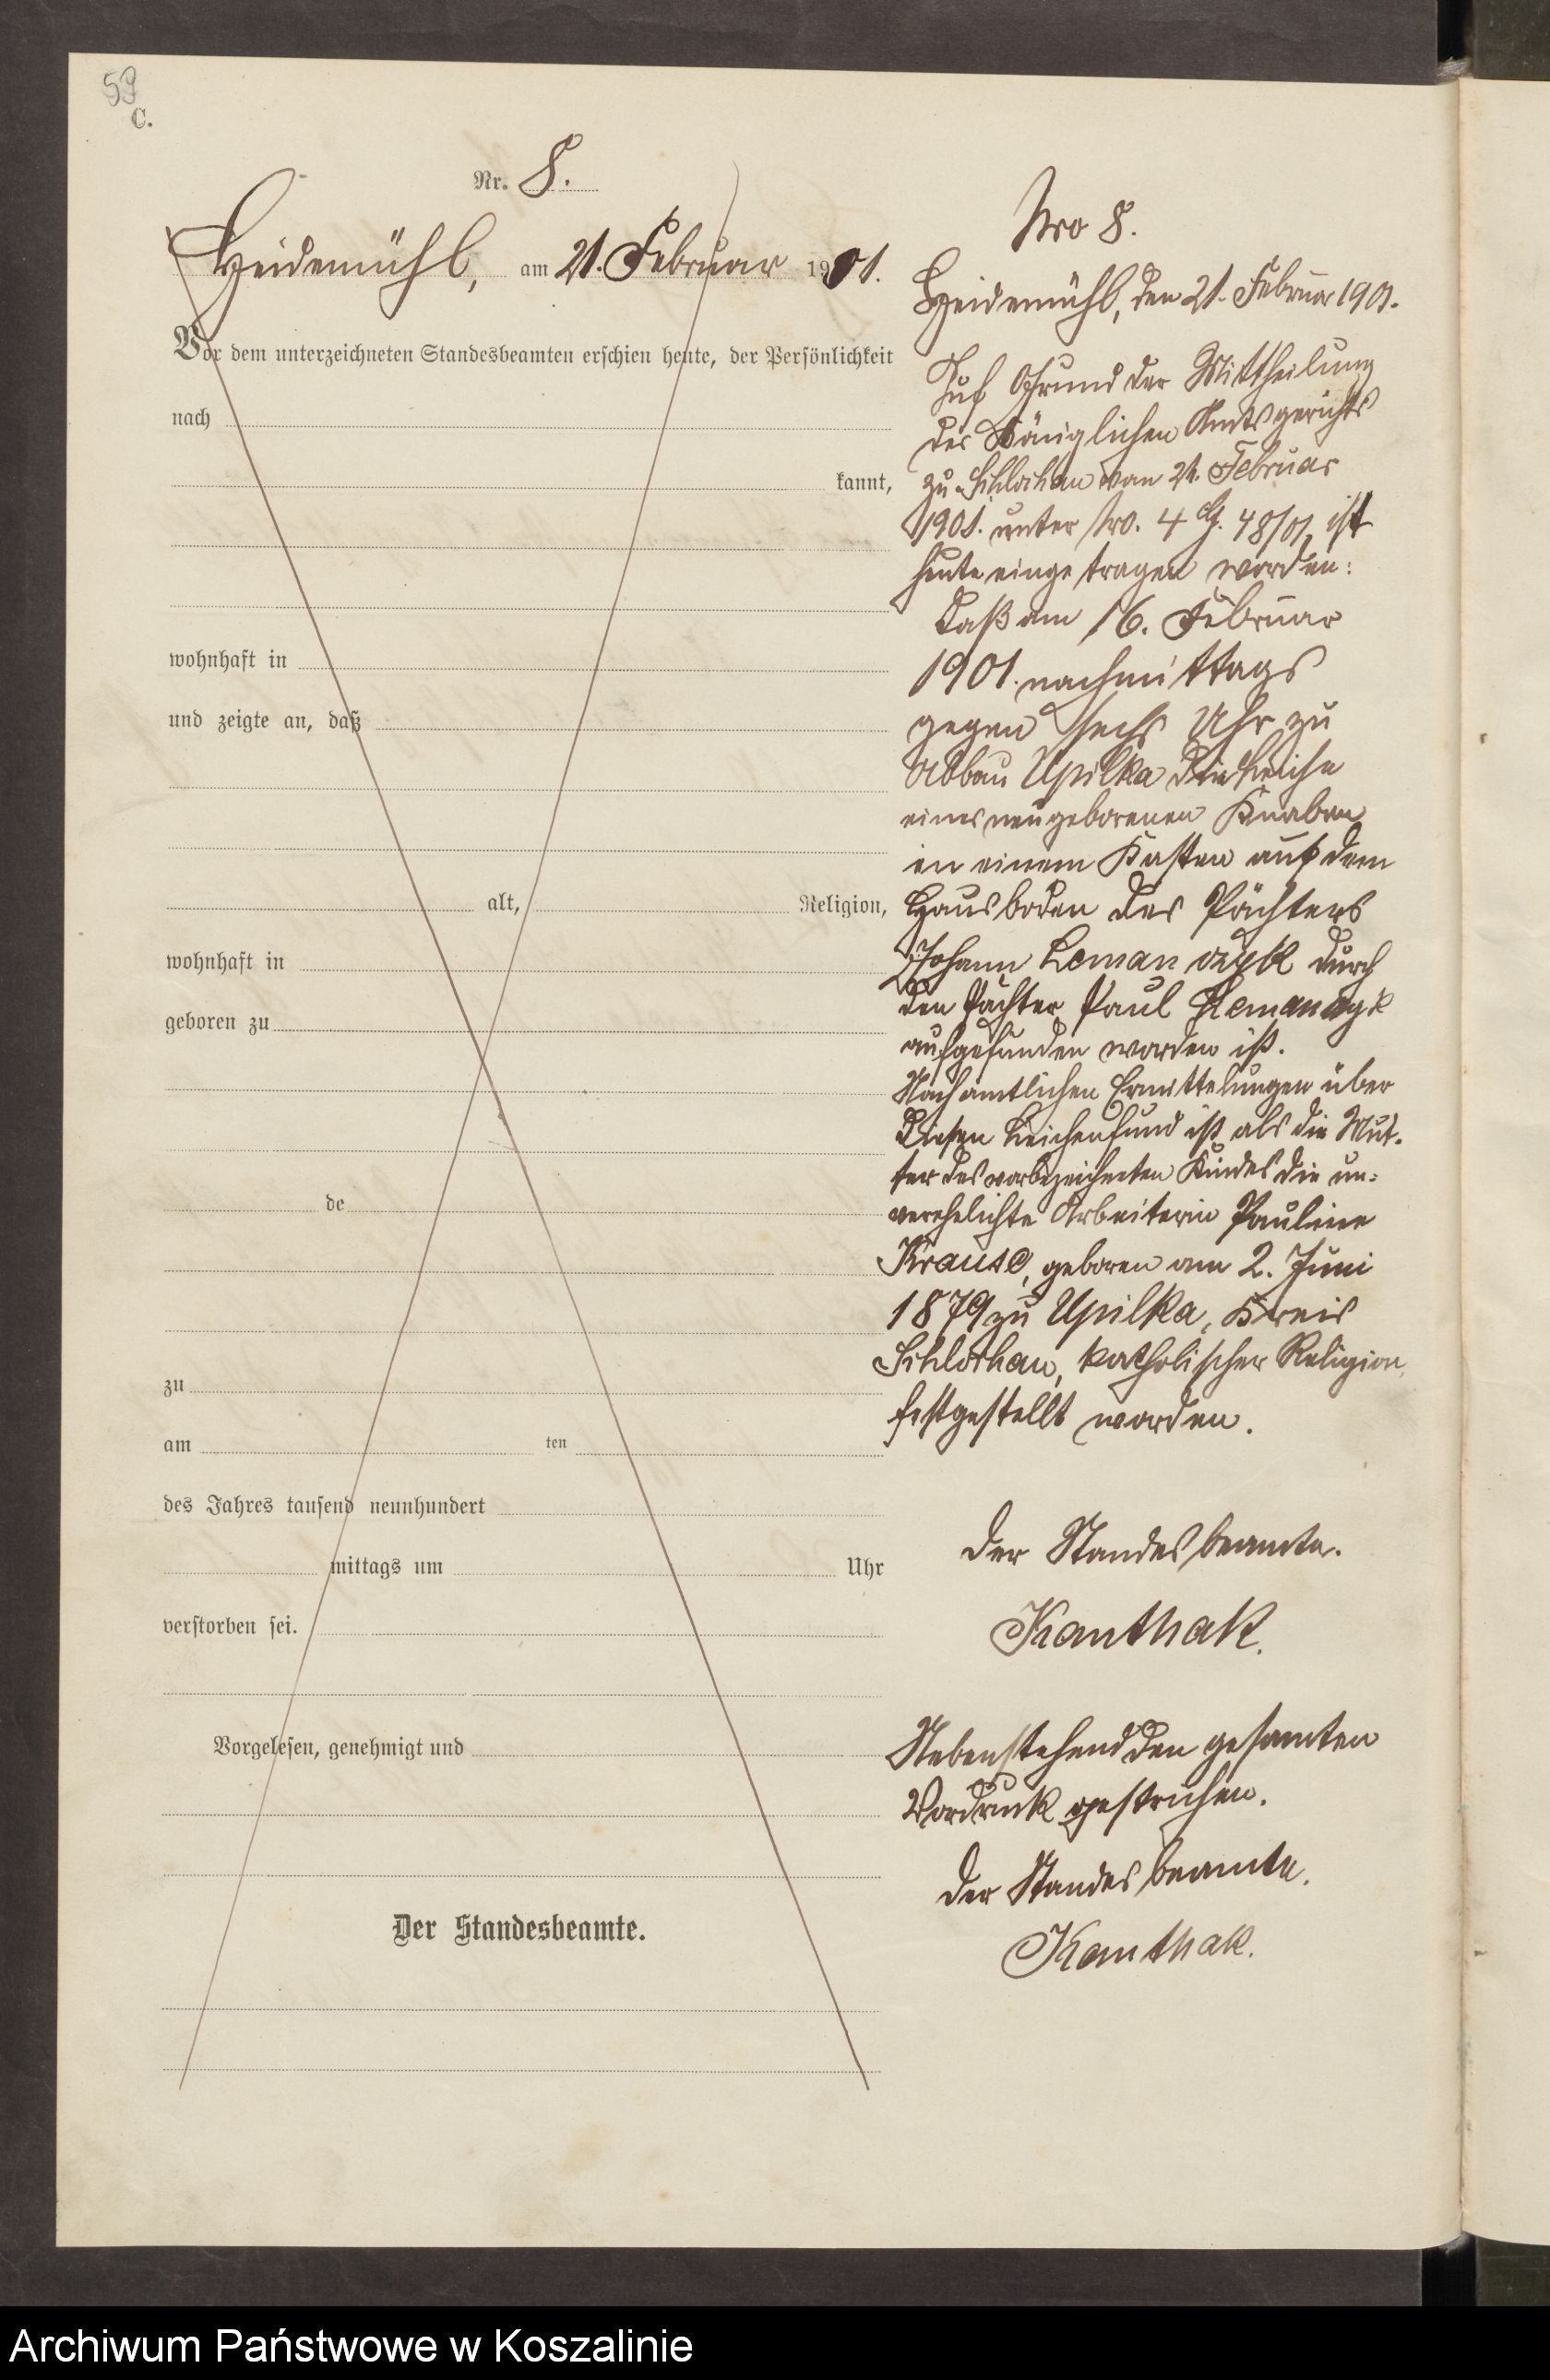 59
C.
Nr. 8.
Heidemühl, am 21. Februar 1901.
Vor dem unterzeichneten Standesbeamten erschien heute, der Persönlichkeit
nach
kannt,
wohnhaft in
und zeigte an, daß
alt, Religion,
wohnhaft in
geboren zu
de
zu
am ten
des Jahres tausend neunhundert
mittags um Uhr
verstorben sei.
Vorgelesen, genehmigt und
Der Standesbeamte.
Nro 8.
Heidemühl, den 21. Februar 1901.
Auf Grund der Mittheilung
des Königlichen Amtsgerichts
zu Schlochau vom 21. Februar
1901. unter Nro. 4 G. 48/01, ist
heute eingetragen worden:
Daß am 16. Februar
1901. nachmittags
gegen sechs Uhr zu
Abbau Upilka die Leiche
eines neugeborenen Knaben
in einem Kasten auf dem
Hausboden des Pächters
Johann Lemanczyk durch
den Pächter Paul Lemanczyk
aufgefunden worden ist.
Nach amtlichen Ermittelungen über
diesen Leichenfund ist als die Mut-
ter des vorbezeichneten Kindes die un-
verehelichte Arbeiterin Pauline
Krause, geboren am 2. Juni
1879 zu Upilka, Kreis
Schlochau, katholischer Religion,
festgestellt worden.
Der Standesbeamte.
Kanthak.
Nebenstehend den gesamten
Vordruck gestrichen.
Der Standesbeamte.
Kanthak.
Archiwum Państwowe w Koszalinie